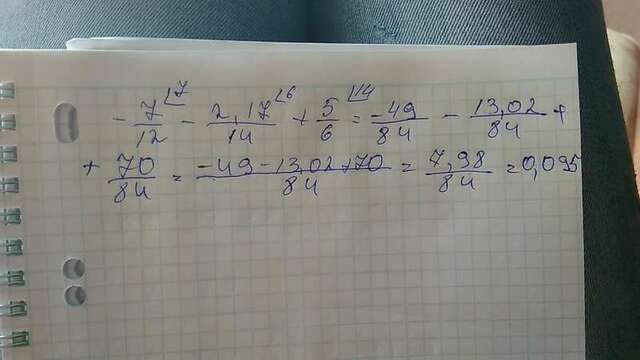 - 7/12 ⌊7 - 2,17/14 ⌊6 + 5/6 ⌊14 = -49/84 - 13,02/84 +
+ 70/84 = -49-13,02+70/84 = 7,98/84 = 0,095